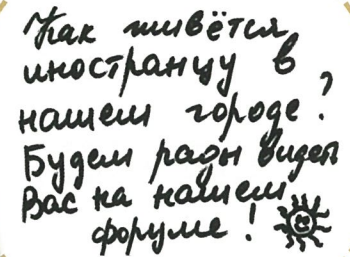 Как живётся
иностранцу в
нашем городе?
Будем рады видеть
Вас на нашем
форуме!